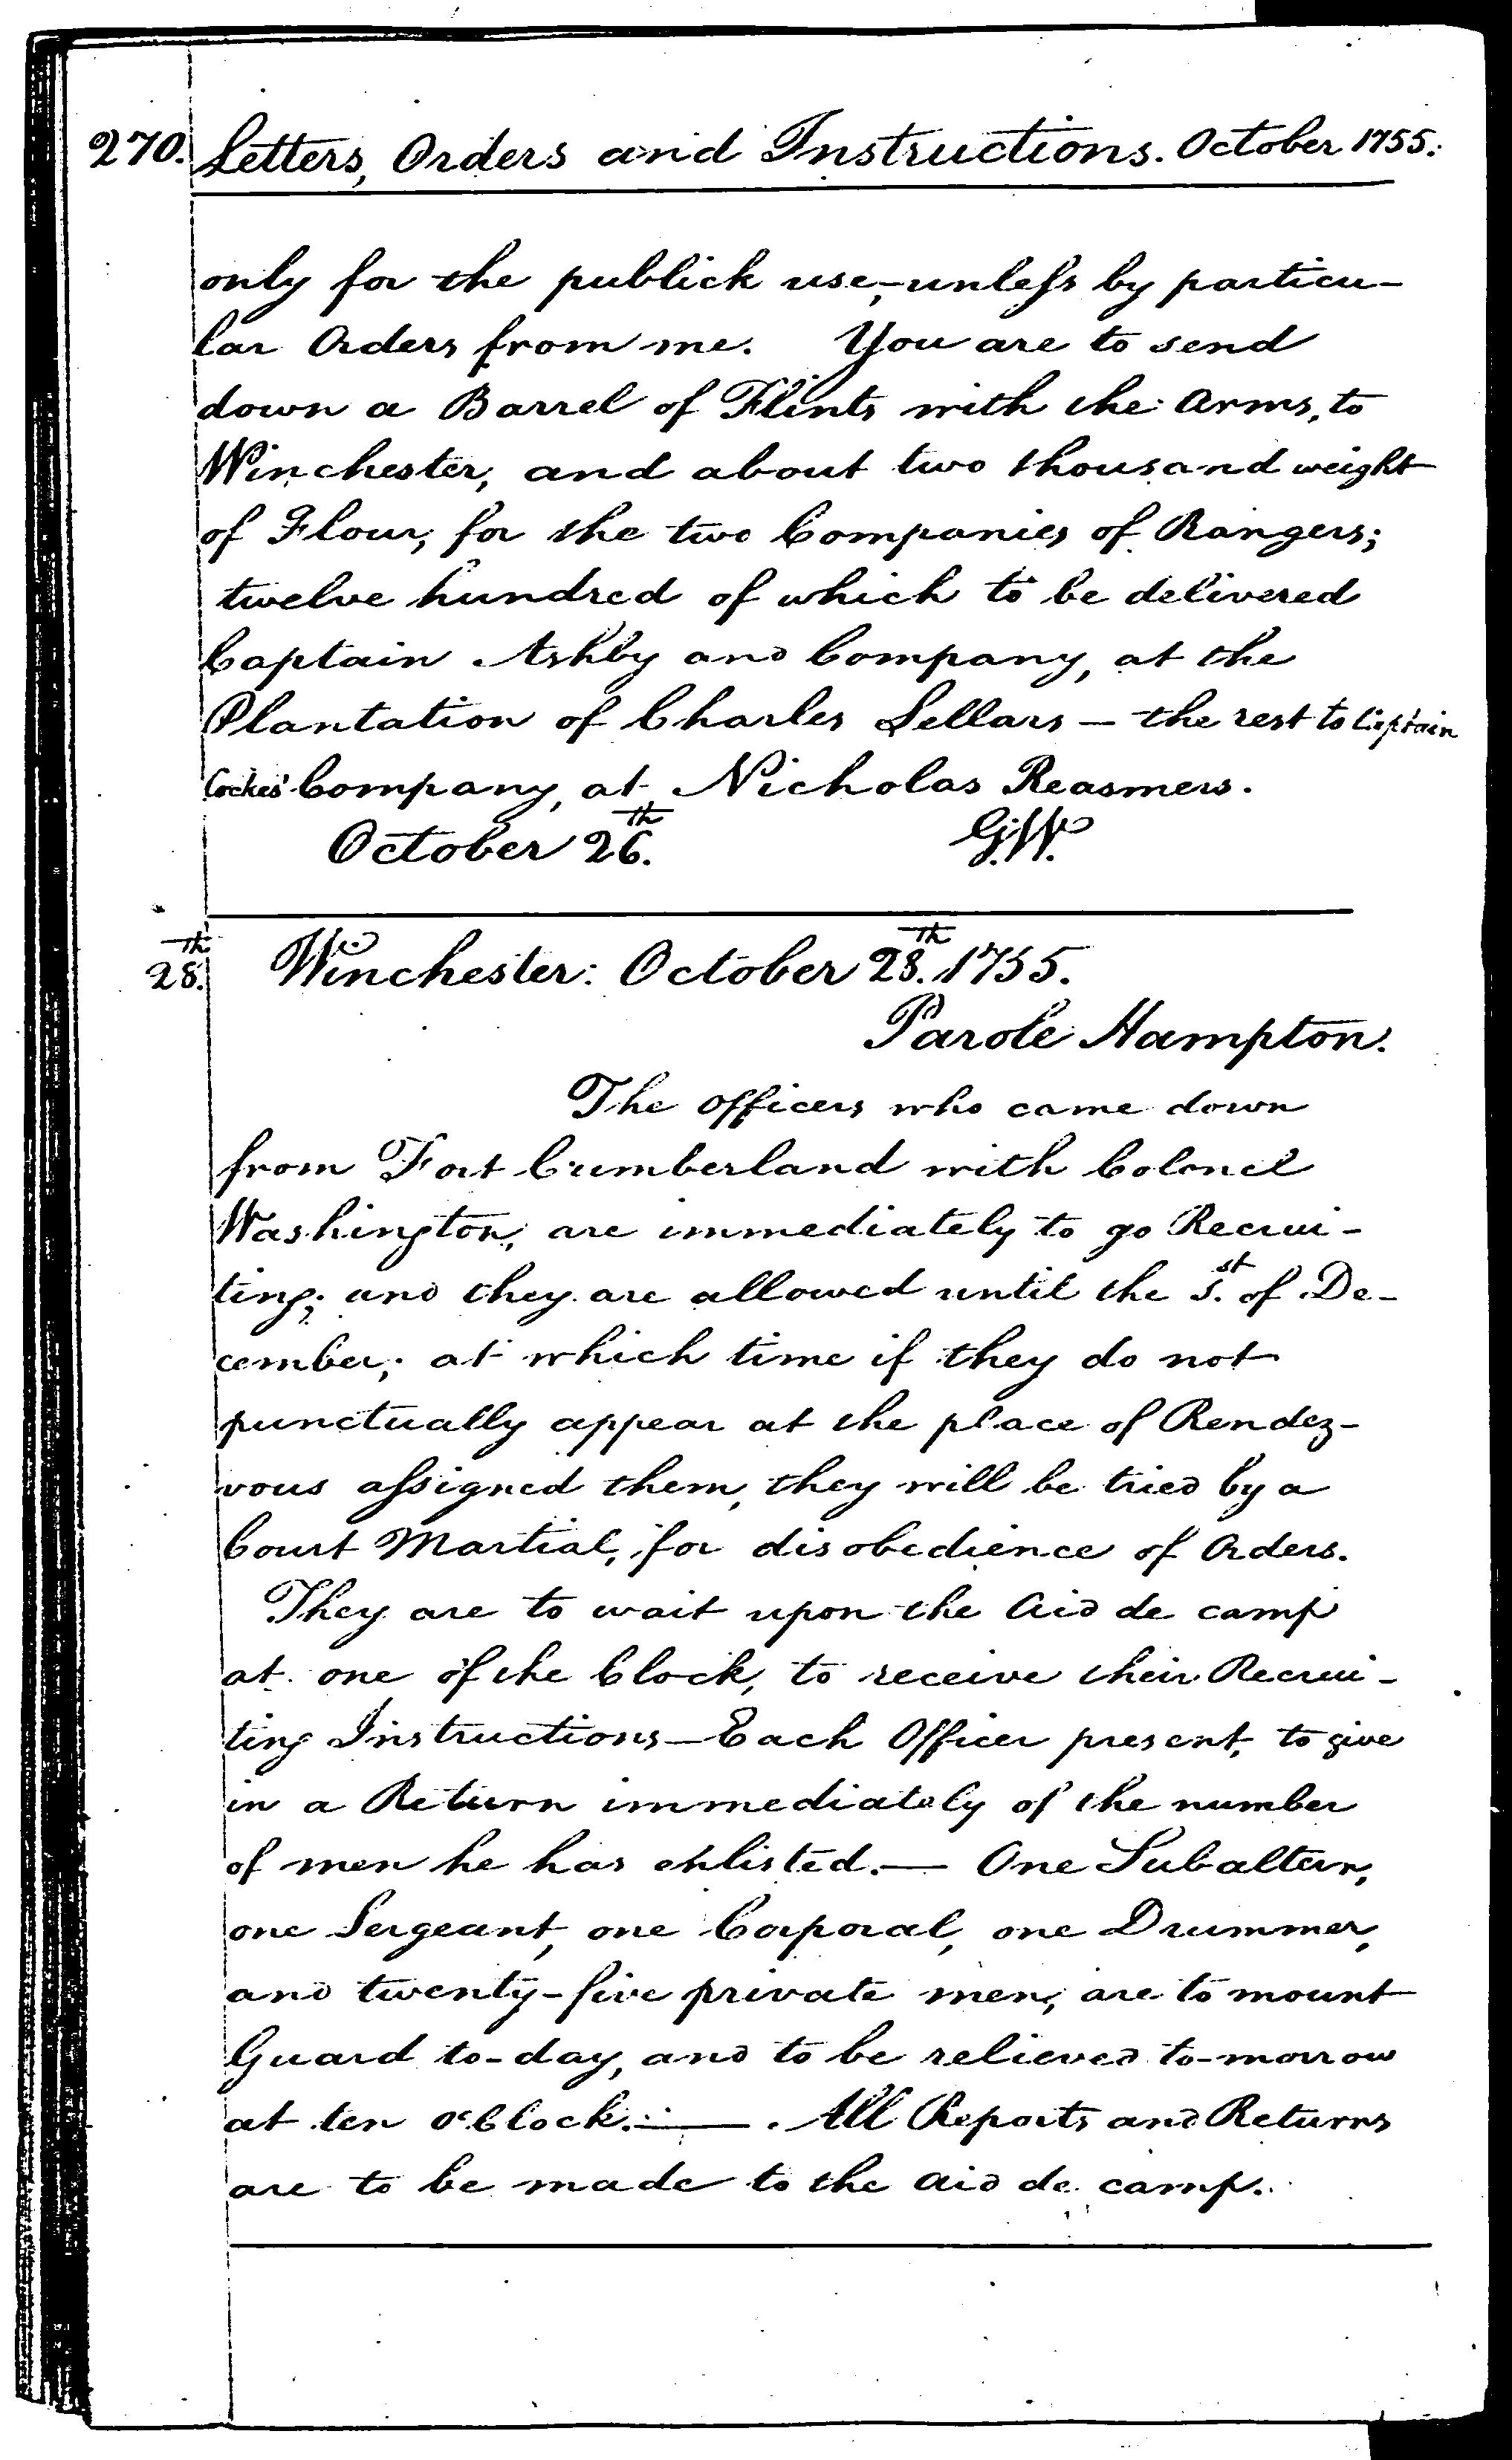 270. Letters, Orders and Instructions. October 1755.
only for the publick use,-unless by particu-
lar Orders from me. You are to send
down a Barrel of Flints with the Arms, to
Winchester, and about two thousand weight
of Flour, for the two Companies of Rangers;
twelve hundred of which to be delivered
Captain Ashby and Company, at the
Plantation of Charles Sellars - the rest to Captain
Cockes' Company, at Nicholas Reasmers.
October 26.th G:W.
28.th Winchester: October 28.th 1755.
Parole Hampton.
The officers who came down
from Fort Cumberland with Colonel
Washington, are immediately to go Recrui-
ting; and they are allowed until the 1.st of De-
cember; at which time if they do not
punctually appear at the place of Rendez-
vous assigned them, they will be tried by a
Court Martial, for disobedience of Orders.
They are to wait upon the Aid de camp
at one of the Clock, to receive their Recrui-
ting Instructions - Each Officer present, to give
in a Return immediately of the number
of men he has enlisted. - One Subaltern,
one Sergeant, one Corporal, one Drummer,
and twenty-five private men, are to mount
Guard to-day, and to be relieved to-morrow
at ten o'Clock. - . All Reports and Returns
are to be made to the Aid de camp.